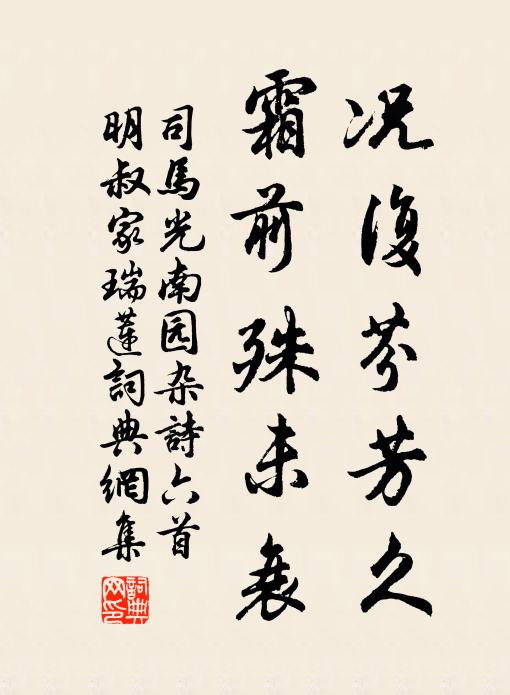 况復芬芳久
霜前殊未衰
司馬光南园杂詩六首
明叔家瑞蓮詞典網集
詞典网印